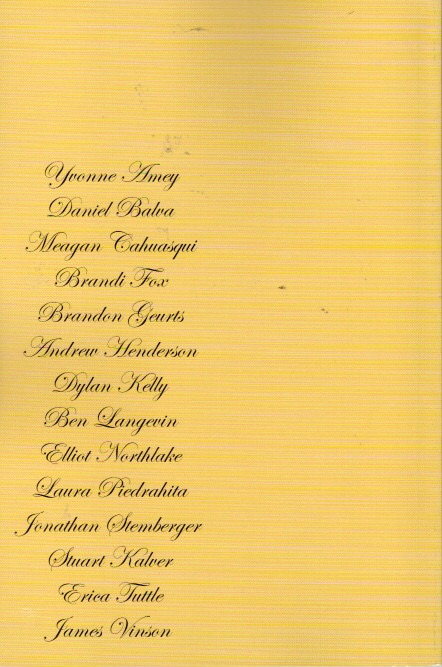 Yvonne Amey
Daniel Balva
Meagan Cahuasqui
Brandi Fox
Brandon Geurts
Andrew Henderson
Dylan Kelly
Ben Langevin
Elliot Northlake
Laura Piedrahita
Jonathan Stemberger
Stuart Kalver
Erica Tuttle
James Vinson